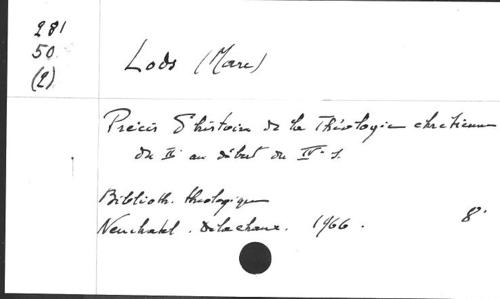 281
50
(2)
Lods (Marc)
Précis d'histoire de la Théologie chrétienne
du II au début du IVe s.
Biblioth. théologique
Neuchatel. Delachaux. 1966.
8°